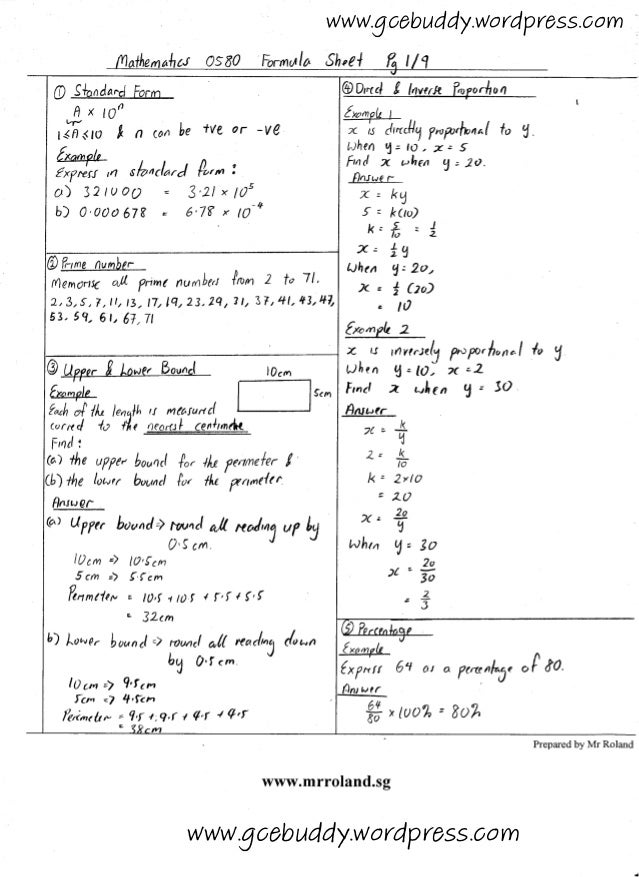 www.gcebuddy.wordpress.com
Mathematics 0580 Formula Sheet Pg 1/9
① Standard Form
A × 10ⁿ
1 ≤ A ≤ 10 & n can be +ve or -ve
Example
Express in standard form :
a) 321000 = 3.21 × 10⁵
b) 0.000678 = 6.78 × 10⁻⁴
② Prime number
Memorise all prime numbers from 2 to 71.
2,3,5,7,11,13,17,19,23,29,31,37,41,43,47,
53,59,61,67,71
③ Upper & Lower Bound
10cm
5cm
Example
Each of the length is measured
curred to the nearest centimetre
Find :
(a) the upper bound for the perimeter &
(b) the lower bound for the perimeter.
Answer
(a) Upper bound ⇒ round all reading up by
0.5cm.
10cm ⇒ 10.5cm
5cm ⇒ 5.5cm
Perimeter = 10.5 + 10.5 + 5.5 + 5.5
= 32cm
b) Lower bound ⇒ round all reading down
by 0.5cm.
10cm ⇒ 9.5cm
5cm ⇒ 4.5cm
Perimeter = 9.5 + 9.5 + 4.5 + 4.5
= 38cm
④ Direct & Inverse Proportion
Example 1
x is directly proportional to y.
When y = 10, x = 5
Find x when y = 20.
Answer
x = ky
5 = k(10)
k = 5/10 = 1/2
x = 1/2 y
When y = 20,
x = 1/2 (20)
= 10
Example 2
x is inversely proportional to y
When y = 10, x = 2
Find x when y = 30
Answer
x = k/y
2 = k/10
k = 2×10
= 20
x = 20/y
When y = 30
x = 20/30
= 2/3
⑤ Percentage
Example
Express 64 as a percentage of 80.
Answer
64/80 × 100% = 80%
Prepared by Mr Roland
www.mrroland.sg
www.gcebuddy.wordpress.com